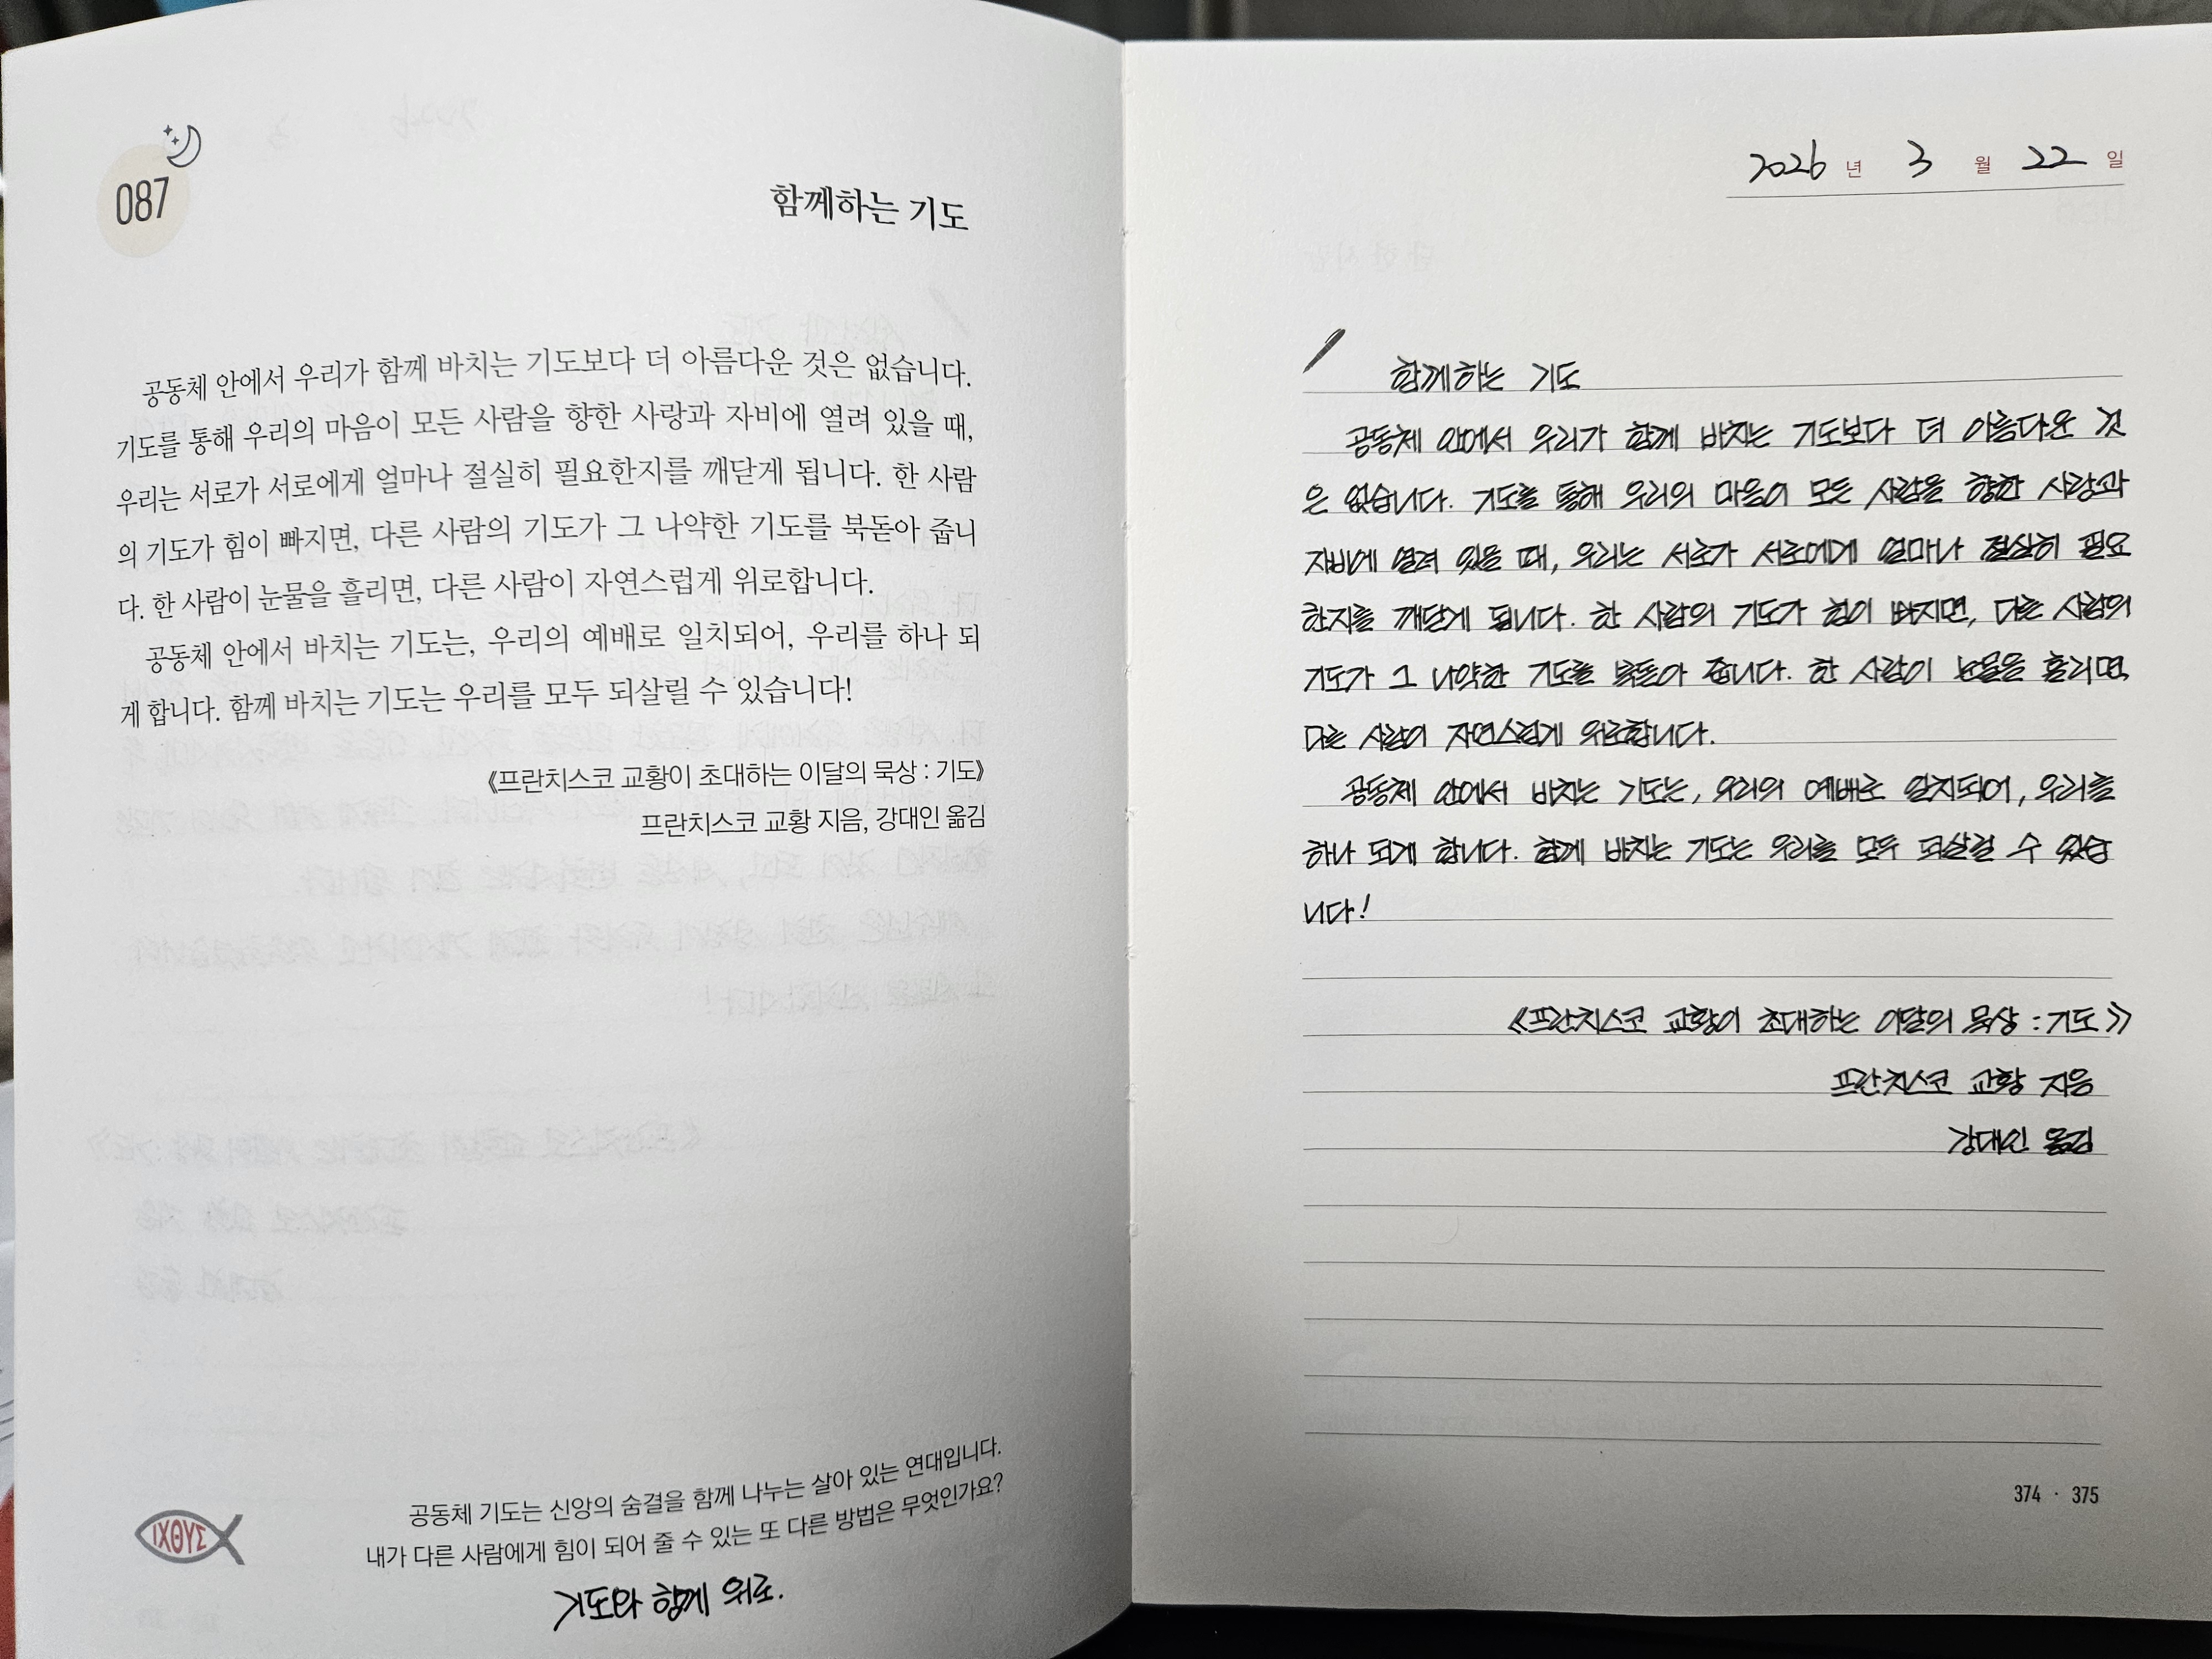 087
함께하는 기도
공동체 안에서 우리가 함께 바치는 기도보다 더 아름다운 것은 없습니다.
기도를 통해 우리의 마음이 모든 사람을 향한 사랑과 자비에 열려 있을 때,
우리는 서로가 서로에게 얼마나 절실히 필요한지를 깨닫게 됩니다. 한 사람
의 기도가 힘이 빠지면, 다른 사람의 기도가 그 나약한 기도를 북돋아 줍니
다. 한 사람이 눈물을 흘리면, 다른 사람이 자연스럽게 위로합니다.
공동체 안에서 바치는 기도는, 우리의 예배로 일치되어, 우리를 하나 되
게 합니다. 함께 바치는 기도는 우리를 모두 되살릴 수 있습니다!
《프란치스코 교황이 초대하는 이달의 묵상 : 기도》
프란치스코 교황 지음, 강대인 옮김
공동체 기도는 신앙의 숨결을 함께 나누는 살아 있는 연대입니다.
내가 다른 사람에게 힘이 되어 줄 수 있는 또 다른 방법은 무엇인가요?
ΙΧΘΥΣ
기도와 함께 위로.
2026 년 3 월 22 일
함께하는 기도
공동체 안에서 우리가 함께 바치는 기도보다 더 아름다운 것
은 없습니다. 기도를 통해 우리의 마음이 모든 사람을 향한 사랑과
자비에 열려 있을 때, 우리는 서로가 서로에게 얼마나 절실히 필요
한지를 깨닫게 됩니다. 한 사람의 기도가 힘이 빠지면, 다른 사람의
기도가 그 나약한 기도를 북돋아 줍니다. 한 사람이 눈물을 흘리면,
다른 사람이 자연스럽게 위로합니다.
공동체 안에서 바치는 기도는, 우리의 예배로 일치되어, 우리를
하나 되게 합니다. 함께 바치는 기도는 우리를 모두 되살릴 수 있습
니다!
《프란치스코 교황이 초대하는 이달의 묵상 : 기도》
프란치스코 교황 지음
강대인 옮김
374 · 375